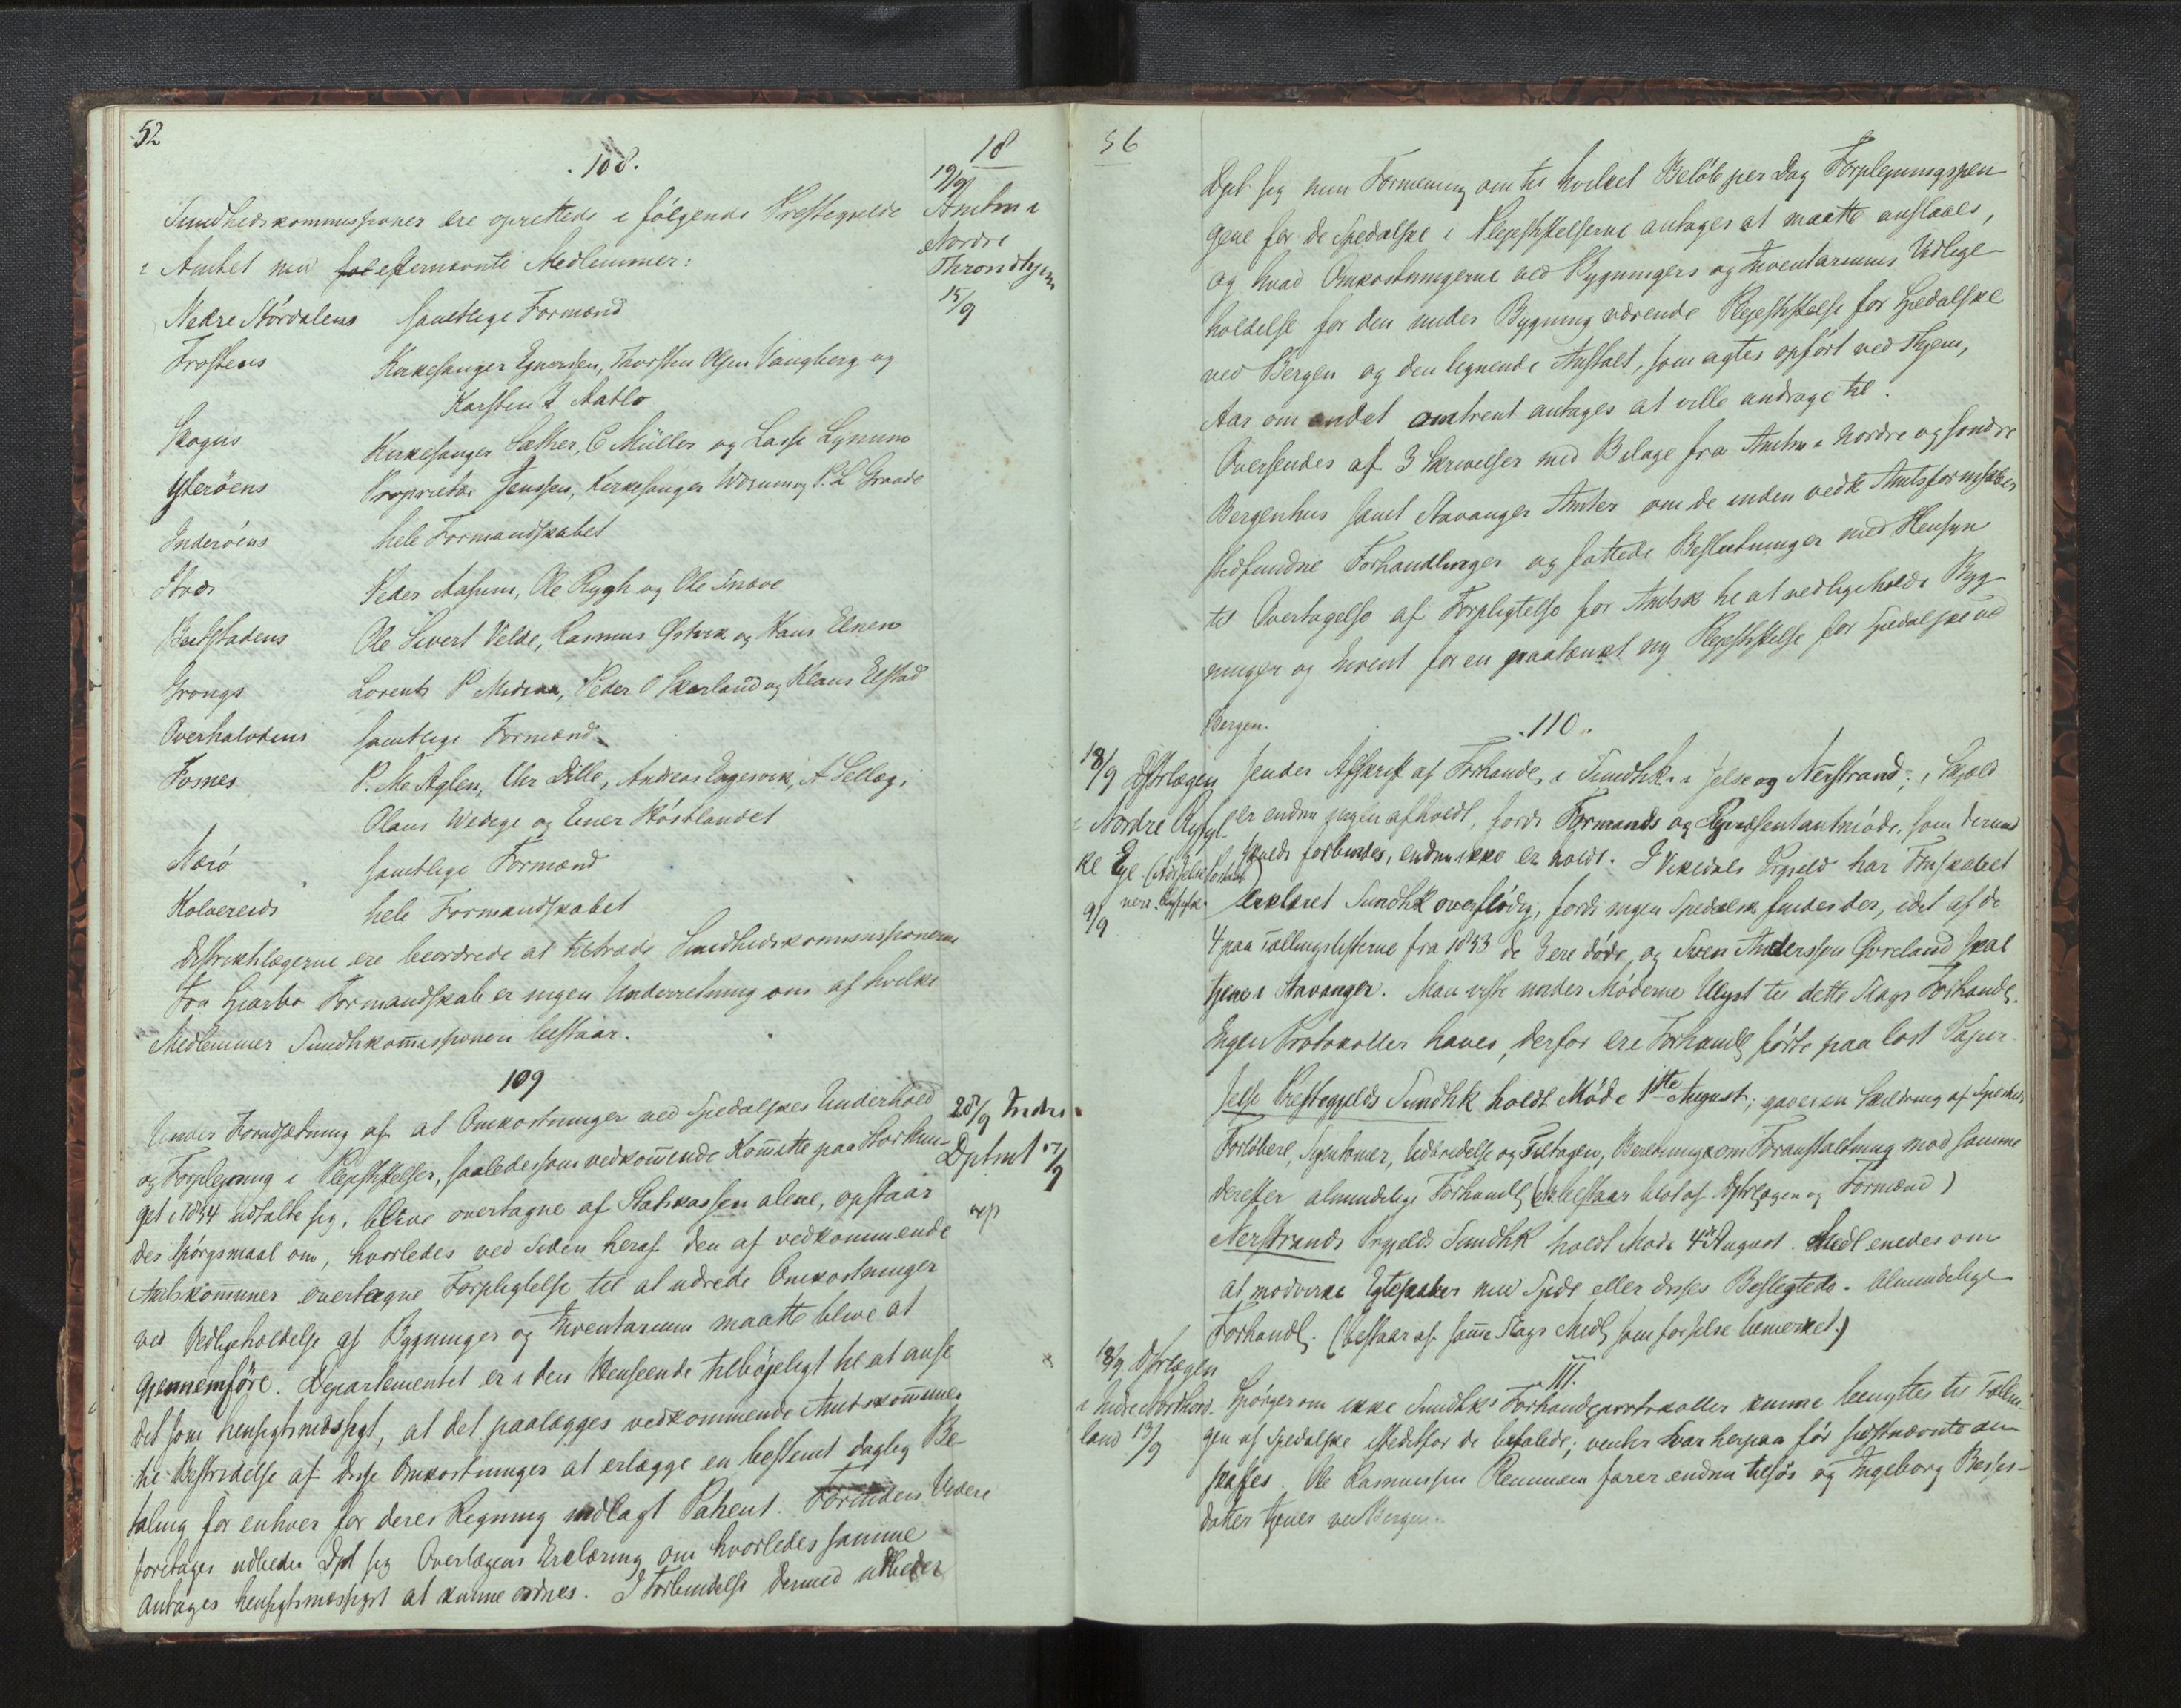 52
18
.108.
19/9
Sundhedskommissioner ere oprettede i følgende Præstegjelde
Amtm i
Nordre
i Amtet med fol efternævnte Medlemmer:
Throndhjem
15/9
Nedre Størdalens samtlige Formænd
Frostens Kirkesanger Ejnersen, Thorsten Olsen Vangberg og
Karsten J Aatlo
Skogns Kirkesanger Sæther, C Müller og Lasse Lynum
Ytterøens Proprietær Jenssen, Kirkesanger Worum og P. L Graade
Inderøens hele Formandskabet
Stods Peder Aasum, Ole Rygh og Ole Tnøve
Beitstadens Ole Sivert Velde, Rasmus Østvik og Hans Elnen
Grongs Lorents P Mediaa, Peder O Skarland og Klaus Elstad
Overhaldens samtlige Formænd
Fosnes P. Me Aglen, Chr Dille, Andreas Engesvik, A Sellæg,
Olaus Wedege og Einer Høstlandet
Nærø samtlige Formænd
Kolvereids hele Formandskabet
Distriktslægerne ere beordrede at tiltræde Sundhedskommissionerne
Fra Sparbo Formandskab er ingen Underretning om af hvilke
Medlemmer Sundhkommissionen bestaar.
109
Under Forudsætning af at Omkostninger ved Spedalskes Underhold
28/9 Indre
og Forplejning i Plejestiftelser, saaledes som vedkommende Komitte paa Storthin-
Dptmt 17/9
get i 1854 udtalte sig, blive overtagne af Statskassen alene, opstaar
des Spørgsmaal om, hvorledes ved Siden heraf den af vedkommende
Amtskommuner overtagne Forpligtelse til at udrede Omkostninger
ved Vedligeholdelse af Bygninger og Inventarium maatte blive at
gjennemføre. Departementet er i den Henseende tilbøjeligt til at anse
det som hensigtsmæssigt, at det paalægges vedkommende Amtskommuner
til Bestridelse af disse Omkostninger at erlægge en bestemt daglig Be-
taling for enhver for deres Regning indlagt Patient. Forinden Videre
foretages udbeder Dpt sig Overlægens Erklæring om hvorledes samme
antages hensigtsmæssigst at kunne ordnes. I Forbindelse dermed udbeder
56
Dpt sig min Formening om til hvilket Beløb per Dag Forplejningspen-
gene for de Spedalske i Plejestiftelserne antages at maatte anslaaes,
og hvad Omkostningerne ved Bygningers og Inventariums Vedlige-
holdelse for den under Bygning værende Plejestiftelse for Spedalske
ved Bergen og den lignende Anstalt, som agtes opført ved Thjem,
Aar om andet omtrent antages at ville andrage til.
Oversendes af 3 Skrivelser med Bilage fra Amtm i Nordre og Søndre
Bergenhus samt Stavanger Amter om de inden vedk Amtsformskaber
stedfundne Forhandlinger og fattede Beslutninger med Hensyn
til Overtagelse af Forpligtelse for Amtsk til at vedligeholde Byg-
ninger og Invent for en paatænkt ny Plejestiftelse for Spedalske ved
Bergen.
.110.
18/9 Distrlægen sender Afskrift af Forhandl. i Sundhk. i Jelse og Nerstrand; i Skjold
i Nordre Ryfyl- er endnu ingen afholdt, fordi Formands og Repræsentantmøde, som dermed
ke Eje skulde forbindes, endnu ikke er holdt. I Vikedals Prgjeld har Fmskabet
9/9
erklæret Sundhk overflødig, fordi ingen Spedalsk findes der, idet af de
4 paa Tællingslisterne fra 1853 de 3 ere døde, og Sven Anderssen Øvreland skal
tjene i Stavanger. Man viste under Møderne Ulyst til dette Slags Forhandl.
Ingen Protokoller haves, derfor ere Forhandl førte paa løst Papir.
Jelse Præstegjelds Sundhk holdt Møde 1ste August; gaves en Skildring af Spedskds
Forløbere, Symtomer, Udbredelse og Tiltagen, Beretning om Foranstaltning mod samme
derefter almindelige Forhandl (bestaar blot af Distrlægen og Formænd)
Nerstrands Prgjelds Sundhk holdt Møde 4de August. Medl enedes om
at modvirke Egteskaber med Spede eller disses Beslegtede. Almindelige
Forhandl. (bestaar af samme Slags Medl som for Jelse bemærket.)
111.
18/9 Distrlægen
i Indre Nordhord- Spørger om ikke Sundhks Forhandlprotokoller kunne benyttes til Tællin-
land 13/9
gen af Spedalske istedetfor de befalede; venter Svar herpaa før sidstnævnte an-
skaffes. Ole Rasmussen Remmem farer endnu tilsøs og Ingeborg Besses-
datter tjener ved Bergen.